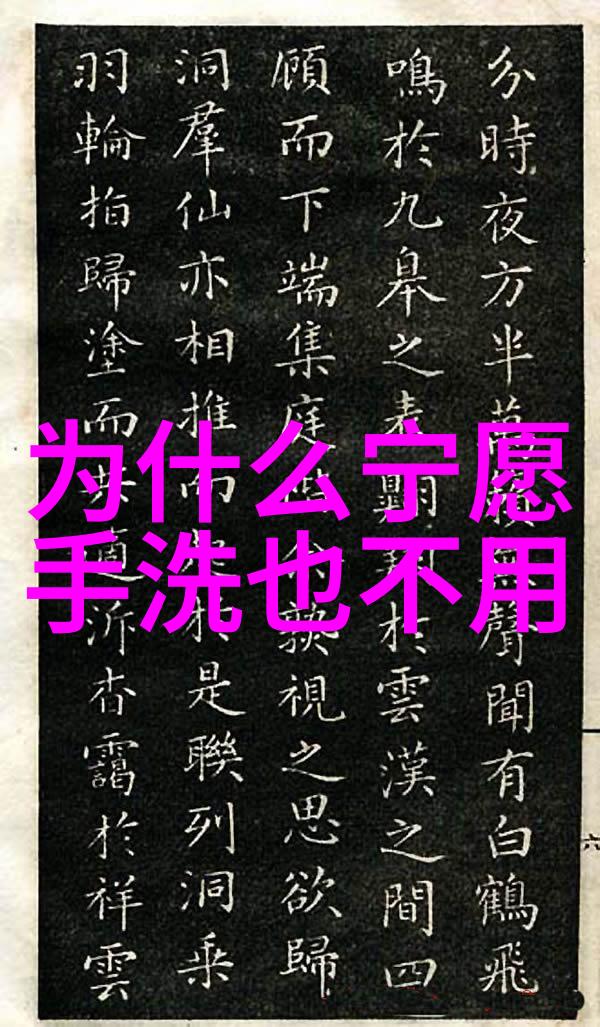 为什么宁愿
手洗也不用
分時夜方半萬聲聞有白鶴飛
鳴於九皋之表於雲漢之間四
顧而下端集庭視之思欲歸
洞羣仙亦相推而於是聯列洞乘
羽輪拍歸塗而共適泝杳靄於祥雲
六